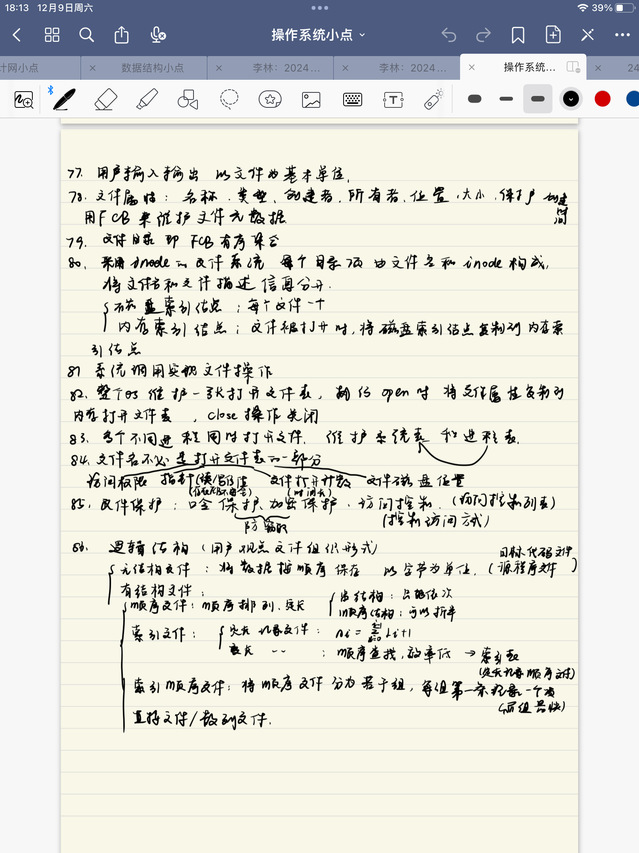 18:13 12月9日周六
39%
操作系统小点
计网小点
数据结构小点
李林：2024...
李林：2024...
操作系统...
24
77. 用户输入输出 以文件为基本单位.
78. 文件属性：名称、类型、创建者、所有者、位置、大小、保护 创建时间
用FCB来维护文件元数据
79. 文件目录即FCB有序集合
80. 采用inode的文件系统 每个目录项由文件名和inode构成,
将文件名和文件描述信息分开.
磁盘索引结点：每个文件一个
内存索引结点：文件被打开时,将磁盘索引结点复制到内存索
引结点
81 系统调用实现文件操作
82. 整个OS维护一张打开文件表, open时 将文件属性复制到
内存打开文件表 , close操作关闭
83. 多个不同进程同时打开文件. 维护系统表 和进程表.
84. 文件名不必是打开文件表的一部分
访问权限 指针(读/写)位置 文件打开计数 文件磁盘位置
85. 文件保护：口令保护、加密保护、访问控制.(访问控制列表)
防窃取 (控制访问方式)
86. 逻辑结构(用户观点文件组织形式)
无结构文件：将数据按顺序保存 以字节为单位.(源程序文件) 目标代码文件
有结构文件：
顺序文件：顺序排列,定长 串结构：只能依次
顺序结构：可以折半
索引文件： 定长记录文件：
变长 〃 ：顺序查找,效率低 → 索引表
(定长记录顺序文件)
索引顺序文件：将顺序文件分为若干组,每组第一条记录一个项
直接文件/散列文件.